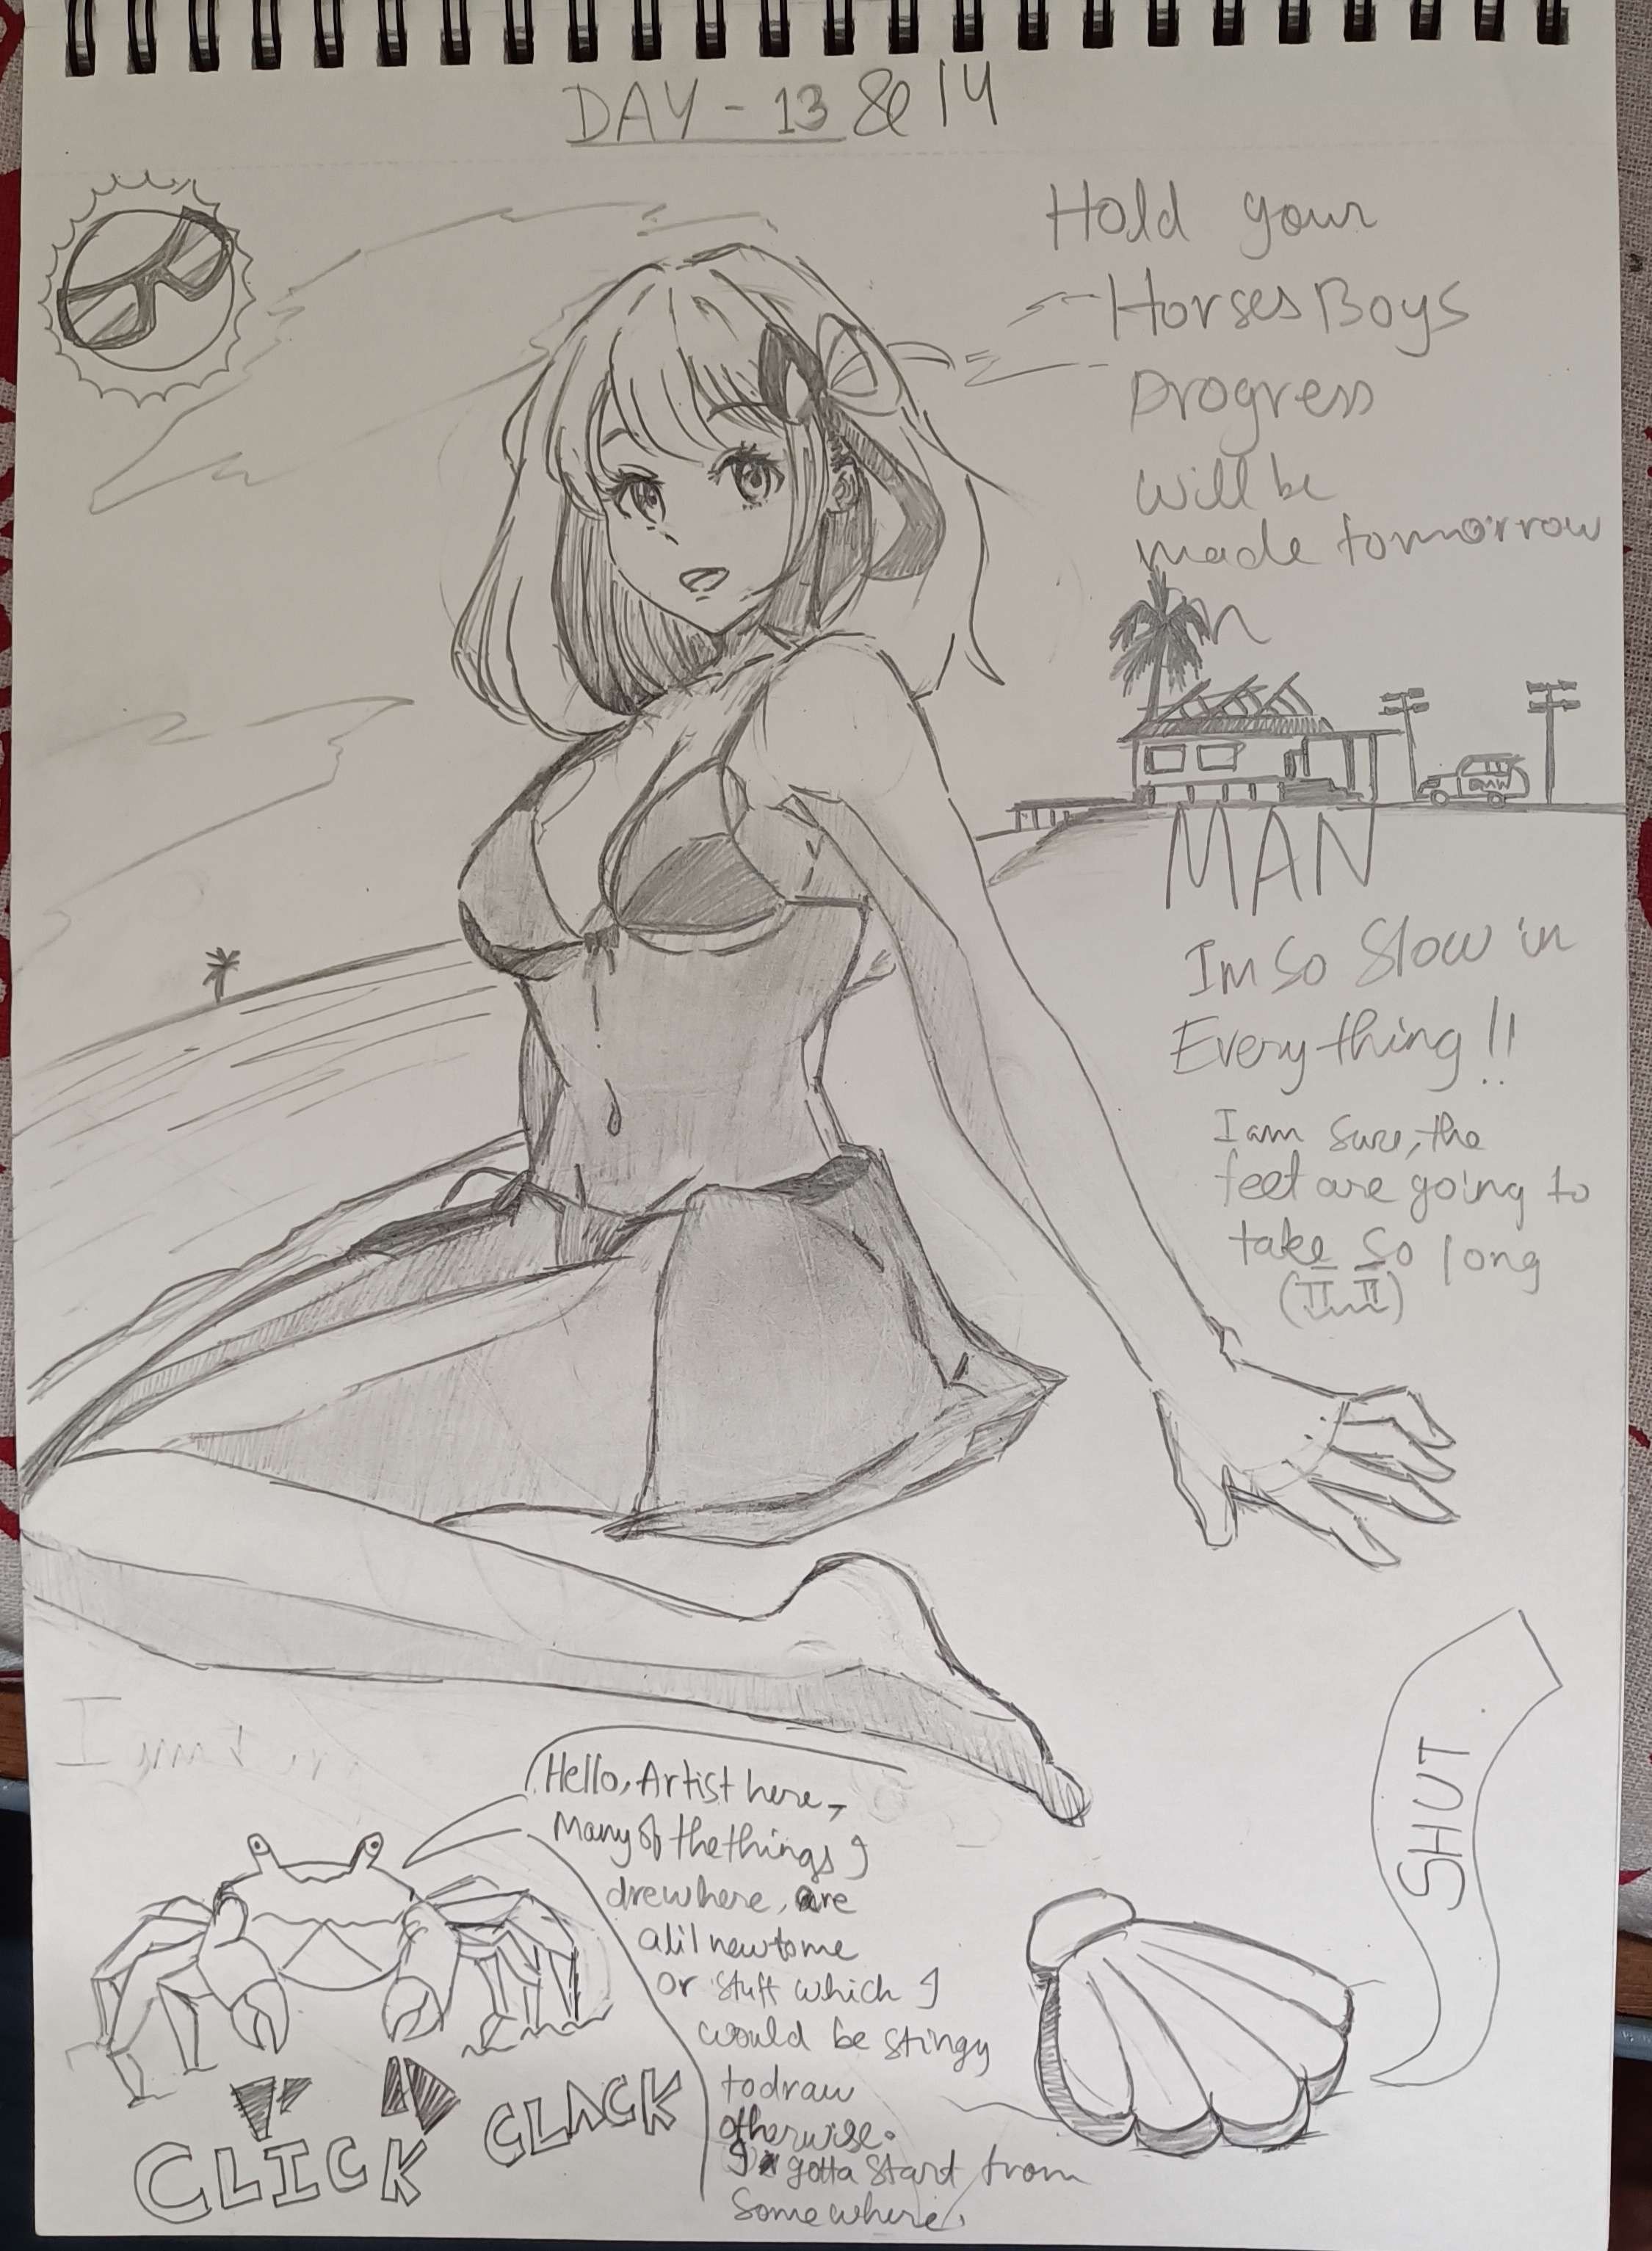 DAY - 13 & 14
Hold your
Horses Boys
progress
will be
made tomorrow
MAN
Im so Slow in
Everything !!
I am sure, the
feet are going to
take so long
Hello, Artist here,
Many of the things I
drew here, are
a lil new to me
or stuff which I
would be stingy
to draw
otherwise.
I gotta start from
somewhere.
SHUT
CLICK CLACK